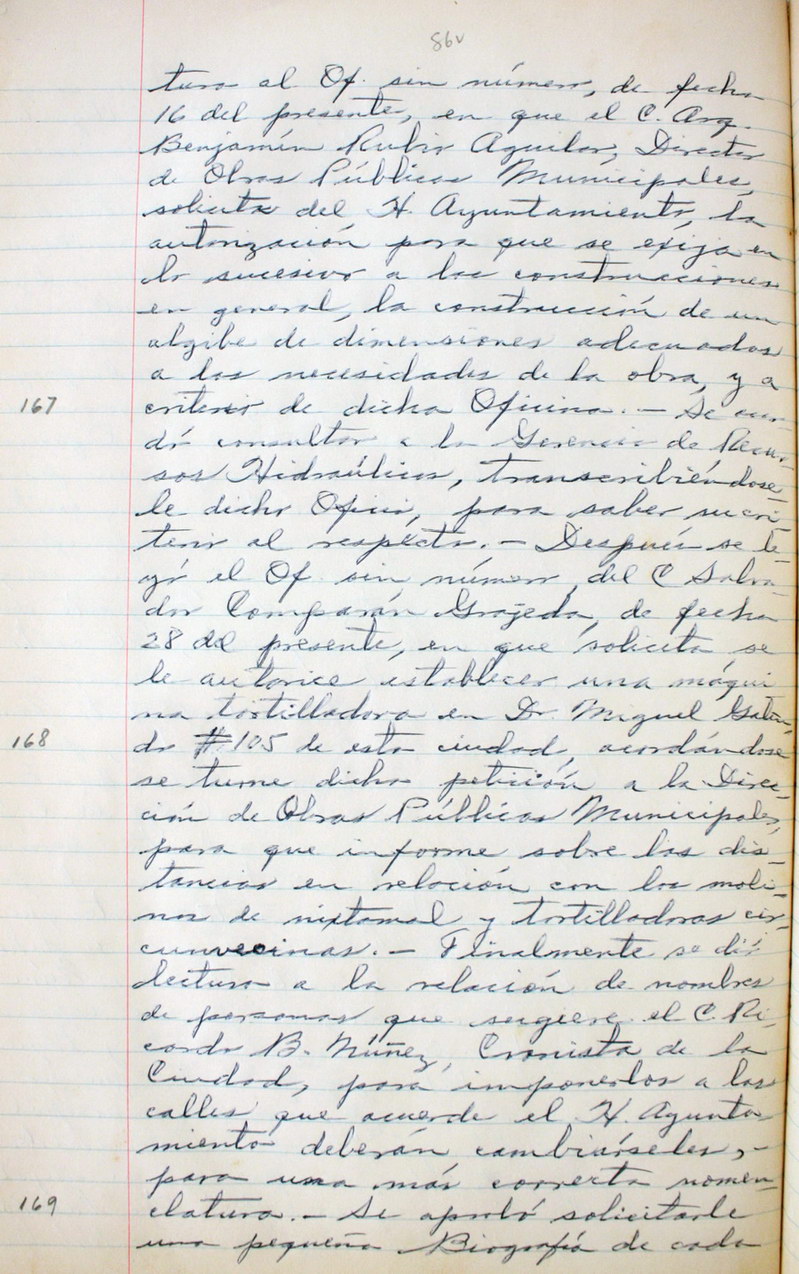 86v
tura al Of. sin número, de fecha
16 del presente, en que el C. Arq.
Benjamín Rubio Aguilar, Director
de Obras Públicas Municipales,
solicita del H. Ayuntamiento, la
autorización para que se exija en
lo sucesivo a las construcciones
en general, la construcción de un
algibe de dimensiones adecuadas
a las necesidades de la obra, y a
167 criterio de dicha Oficina. - Se acor
dó consultar a la Gerencia de Recur-
sos Hidraúlicos, transcribiéndose-
le dicho Oficio, para saber su cri-
terio al respecto. - Después se le-
yó el Of. sin número, del C Salva-
dor Comparán Grajeda, de fecha
28 del presente, en que solicita se
le autorice establecer una máqui
na tortilladora en Dr. Miguel Galin-
168 do #105 de esta ciudad, acordándose
se turne dicha petición a la Direc-
ción de Obras Públicas Municipales,
para que informe sobre las dis-
tancias en relación con los moli-
nos de nixtamal y tortilladoras cir-
cunvecinas. - Finalmente se dió
lectura a la relación de nombres
de personas que sugiere el C. Ri-
cardo B. Núñez, Cronista de la
Ciudad, para imponerlos a las
calles que acuerde el H. Ayunta-
miento deberán cambiárseles, -
para una más correcta nomen-
169 clatura. - Se aprobó solicitarle
una pequeña Biografía de cada